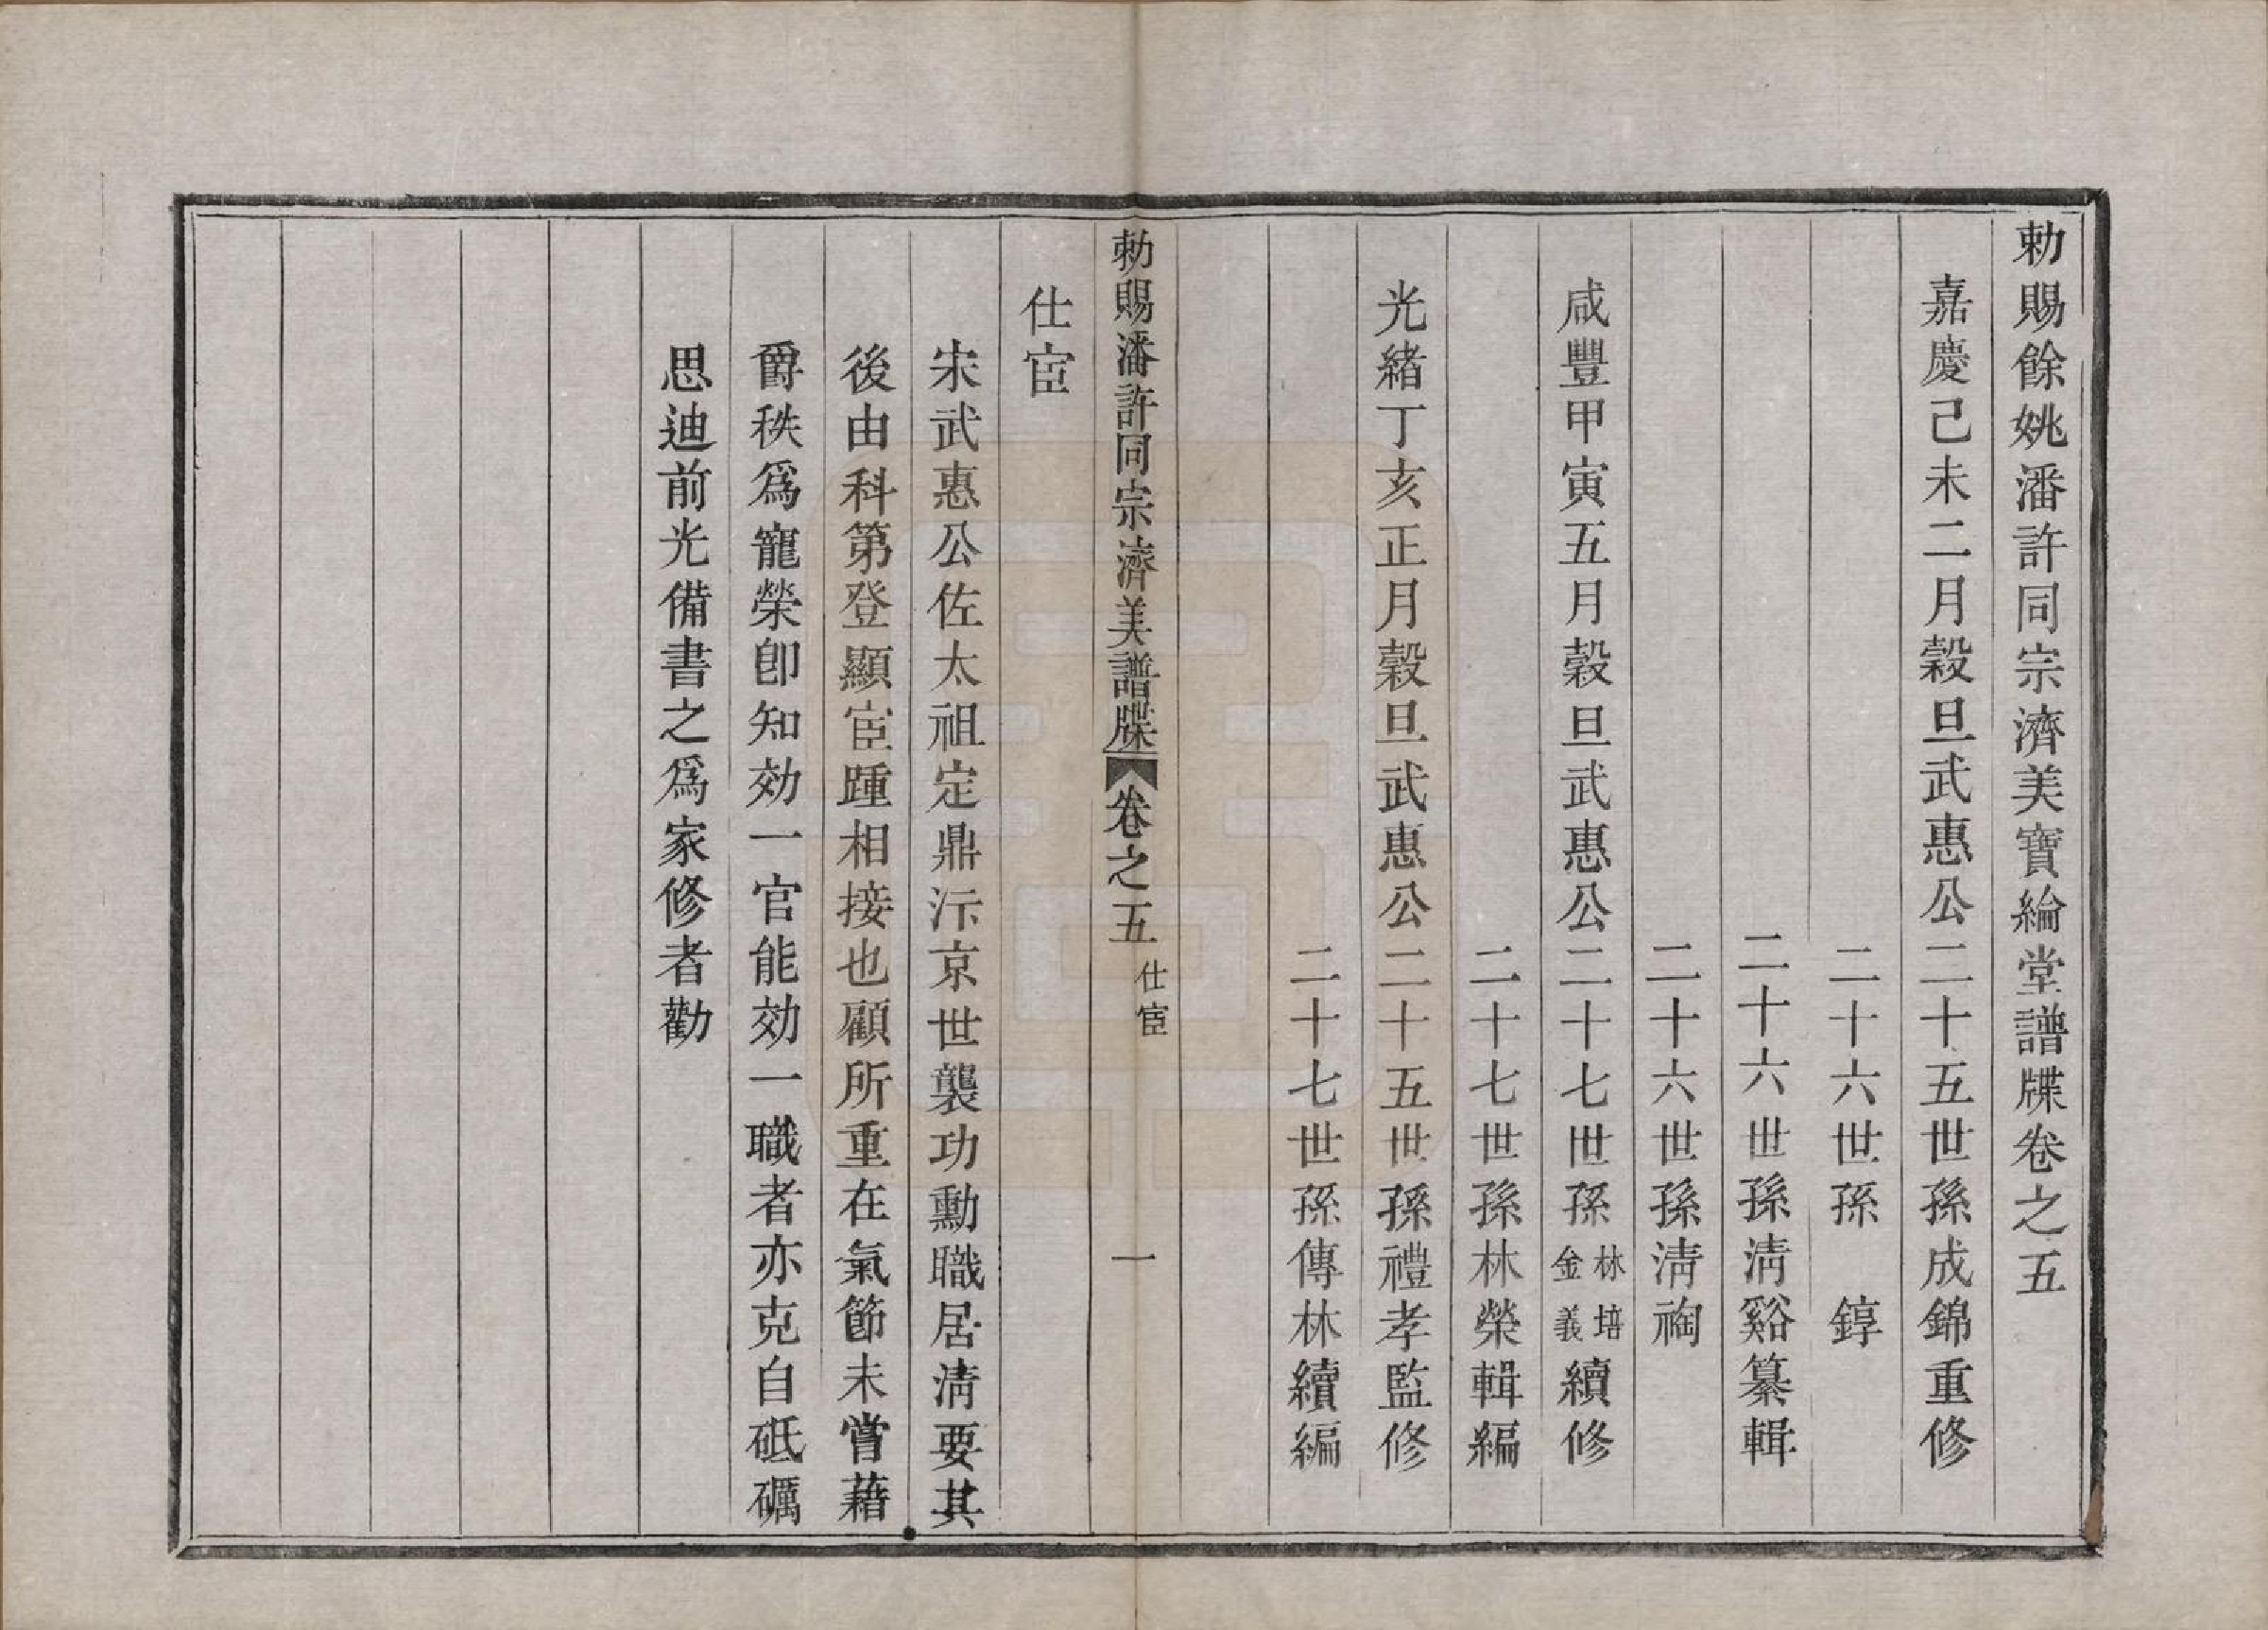 勅賜餘姚潘許同宗濟美寶綸堂譜牒卷之五
嘉慶己未二月穀旦武惠公二十五世孫成錦重修
二十六世孫　錞
二十六世孫淸谿纂輯
二十六世孫淸裪
咸豐甲寅五月穀旦武惠公二十七世孫林培金義續修
二十七世孫林榮輯編
光緖丁亥正月穀旦武惠公二十五世孫禮孝監修
二十七世孫傳林續編
勅賜潘許同宗濟美譜牒　卷之五　仕宦　一
仕宦
宋武惠公佐太祖定鼎汴京世襲功勳職居淸要其
後由科第登顯宦踵相接也顧所重在氣節未嘗藉
爵秩爲寵榮卽知効一官能効一職者亦克自砥礪
思迪前光備書之爲家修者勸